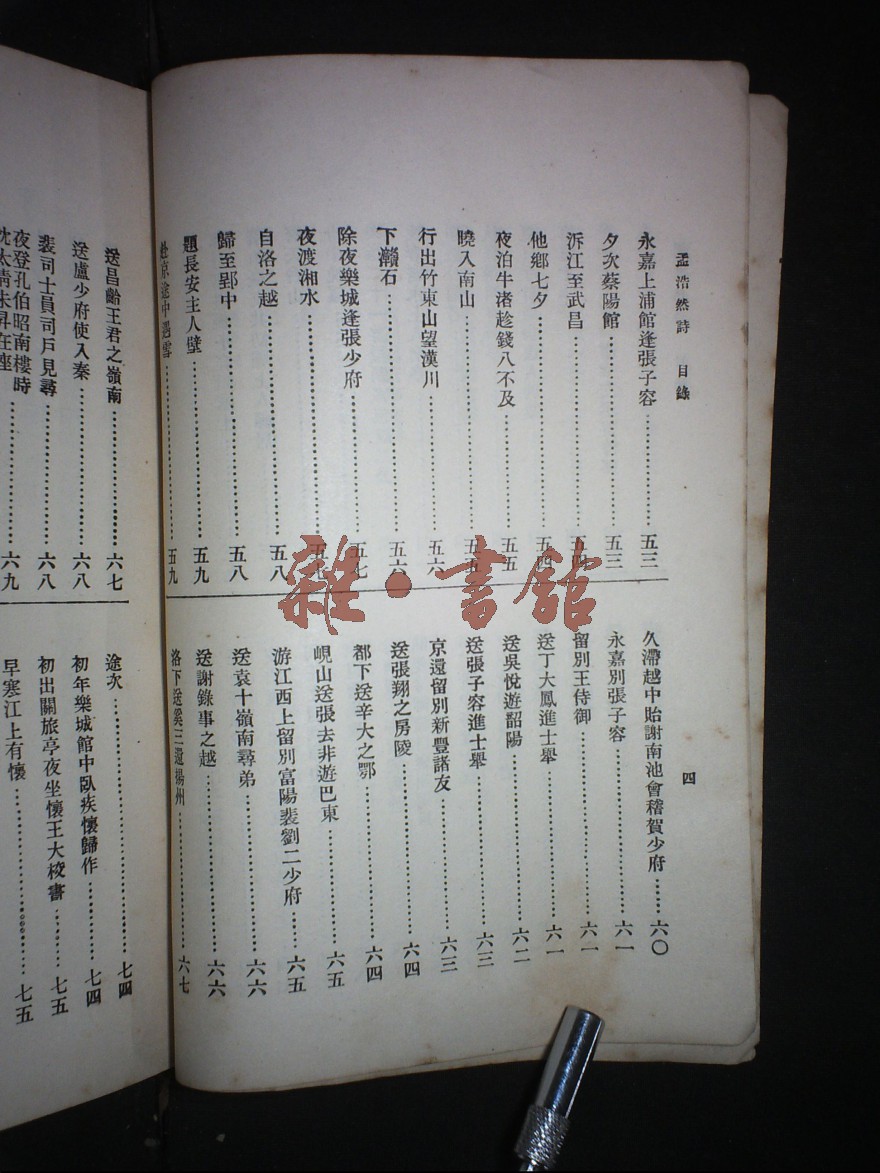 孟浩然詩 目錄
永嘉上浦館逢張子容……五三
夕次蔡陽館……五三
泝江至武昌……五四
他鄉七夕……五四
夜泊牛渚趁錢八不及……五五
曉入南山……五五
行出竹東山望漢川……五六
下灨石……五六
除夜樂城逢張少府……五七
夜渡湘水……五七
自洛之越……五八
歸至郢中……五八
題長安主人壁……五九
赴京途中遇雪……五九
久滯越中貽謝南池會稽賀少府……六〇
永嘉別張子容……六一
留別王侍御……六一
送丁大鳳進士舉……六一
送吳悅遊韶陽……六二
送張子容進士舉……六三
京還留別新豐諸友……六三
送張翔之房陵……六四
都下送辛大之鄂……六四
峴山送張去非遊巴東……六五
游江西上留別富陽裴劉二少府……六五
送袁十嶺南尋弟……六六
送謝錄事之越……六六
洛下送奚三還揚州……六七
四
送昌齡王君之嶺南……六七
送盧少府使入秦……六八
裴司士員司戶見尋……六八
夜登孔伯昭南樓時
沈太清朱昇在座……六九
途次……七四
初年樂城館中臥疾懷歸作……七四
初出關旅亭夜坐懷王大校書……七五
早寒江上有懷……七五
雜·書館